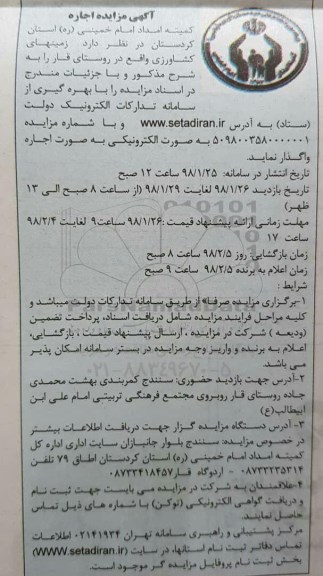 آگهی مزایده اجاره
کمیته امداد امام خمینی (ره) استان
کردستان در نظر دارد زمینهای
کشاورزی واقع در روستای قار را به
شرح مذکور و با جزئیات مندرج
در اسناد مزایده را با بهره گیری از
سامانه تدارکات الکترونیک دولت
(ستاد) به آدرس www.setadiran.ir و با شماره مزایده
۵۰۹۸۰۰۳۵۸۰۰۰۰۰۱ به صورت الکترونیکی به صورت اجاره
واگذار نماید.
تاریخ انتشار در سامانه: ۹۸/۱/۲۵ ساعت ۱۲ صبح
تاریخ بازدید ۹۸/۱/۲۶ لغایت ۹۸/۱/۲۹ (از ساعت ۸ صبح الی ۱۳
ظهر)
مهلت زمانی ارائه پیشنهاد قیمت :۹۸/۱/۲۶ ساعت۹ لغایت ۹۸/۲/۴
ساعت ۱۷
زمان بازگشایی: روز ۹۸/۲/۵ ساعت ۸ صبح
زمان اعلام به برنده ۹۸/۲/۵ ساعت ۹ صبح
شرایط :
۱-برگزاری مزایده صرفا» از طریق سامانه تدارکات دولت میباشد و
کلیه مراحل فرایند مزایده شامل دریافت اسناد، پرداخت تضمین
(ودیعه ) شرکت در مزایده ، ارسال پیشنهاد قیمت ، بازگشایی،
اعلام به برنده و واریز وجه مزایده در بستر سامانه امکان پذیر
می باشد.
۲-آدرس جهت بازدید حضوری: سنندج کمربندی بهشت محمدی
جاده روستای قار روبروی مجتمع فرهنگی تربیتی امام علی ابن
ابیطالب(ع)
۳- آدرس دستگاه مزایده گزار جهت دریافت اطلاعات بیشتر
در خصوص مزایده: سنندج بلوار جانبازان سایت اداری اداره کل
کمیته امداد امام خمینی (ره) استان کردستان اطاق ۷۹ تلفن
۰۸۷۳۳۲۳۵۳۱۴ - اردوگاه قار۰۸۷۳۳۴۱۸۴۵۷
۴-علاقمندان به شرکت در مزایده می بایست جهت ثبت نام
و دریافت گواهی الکترونیکی (توکن) با شماره های ذیل تماس
حاصل نمایند.
مرکز پشتیبانی و راهبری سامانه تهران ۰۲۱۴۱۹۳۴ اطلاعات
تماس دفاتر ثبت نام استانها، در سایت (www.setadiran.ir)
بخش ثبت نام پروفایل مزایده گر موجود است.
۰۲۱-۸۸۳۴۹۶۷۰-۵